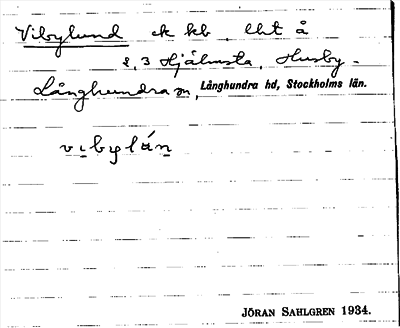 Vibylund ek kb, lht å
2,3 Hjälmsta, Husby-
Långhundra sn, Långhundra hd, Stockholms län.
vıbylán
JÖRAN SAHLGREN 1934.